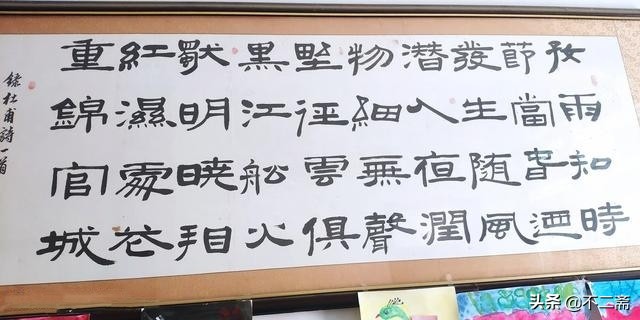 好雨知時
節當春迺
發生随風
潛入夜潤
物細無聲
野徑雲俱
黑江船火
獨明曉看
紅濕處花
重錦官城
錄杜甫詩一首
头条@不二斋